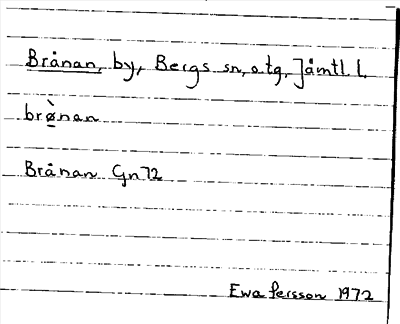 Brånan, by, Bergs sn, o. tg, Jämtl. l.
brø̀nan
Brånan Gn 72
Ewa Persson 1972